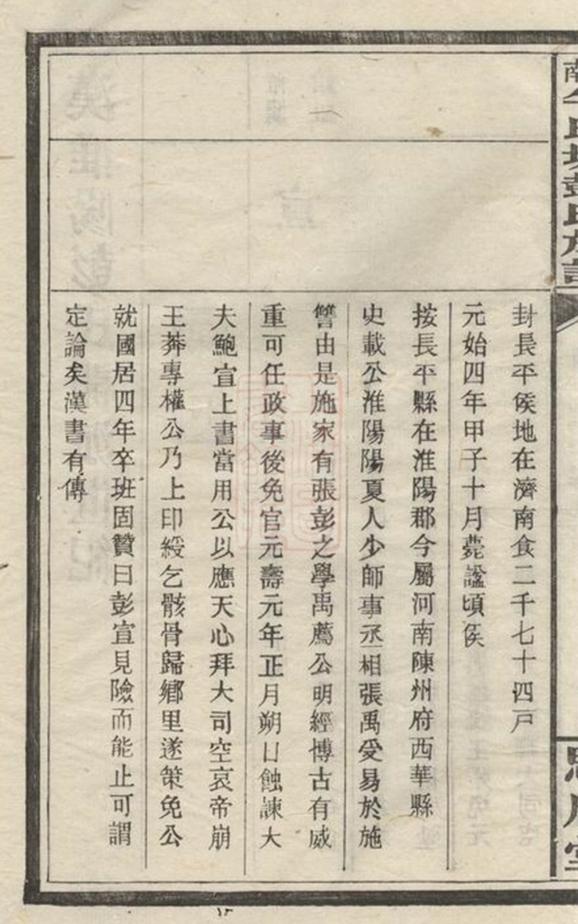 封長平侯地在濟南食二千七十四戸
元始四年甲子十月薨諡頃侯
按長平縣在淮陽郡今屬河南陳州府西華縣
史載公淮陽陽夏人少師事丞相張禹受易於施
讐由是施家有張彭之學禹薦公明經博古有威
重可任政事後免官元壽元年正月朔日蝕諫大
夫鮑宣上書當用公以應天心拜大司空哀帝崩
王莽專權公乃上印綬乞骸骨歸鄉里遂策免公
就國居四年卒班固贊曰彭宣見險而能止可謂
定論矣漢書有傳